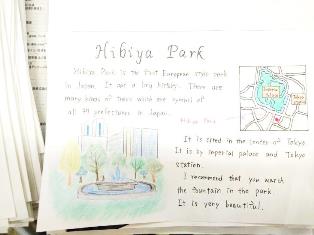 Hibiya Park
Hibiya Park is the first European style park
in Japan. It has a long history. There are
many kinds of trees which are symbol of
all 47 prefectures in Japan.
Hibiya Park
It is sited in the center of Tokyo.
It is by Imperial palace and Tokyo
station.
I recommend that you watch
the fountain in the park.
It is very beautiful.